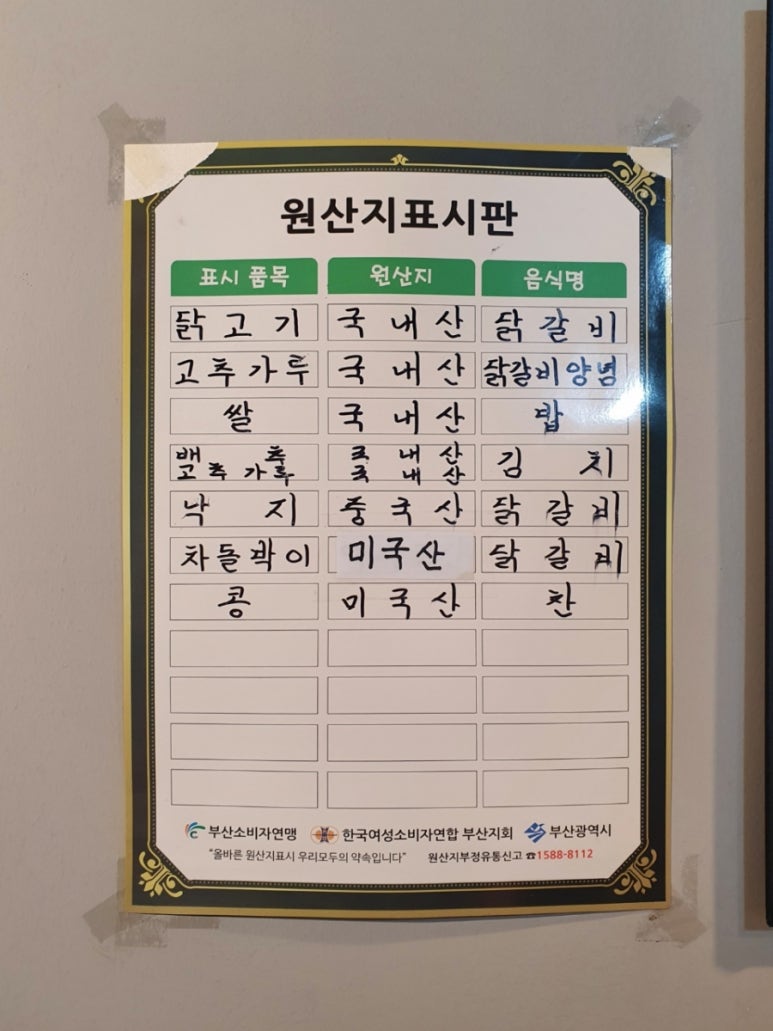 원산지표시판
표시 품목 원산지 음식명
닭고기 국내산 닭갈비
고추가루 국내산 닭갈비양념
쌀 국내산 밥
배추 국내산 김치
고추가루 국내산
낙지 중국산 닭갈비
차돌박이 미국산 닭갈비
콩 미국산 찬
부산소비자연맹 한국여성소비자연합 부산지회 부산광역시
"올바른 원산지표시 우리모두의 약속입니다" 원산지부정유통신고 ☎1588-8112